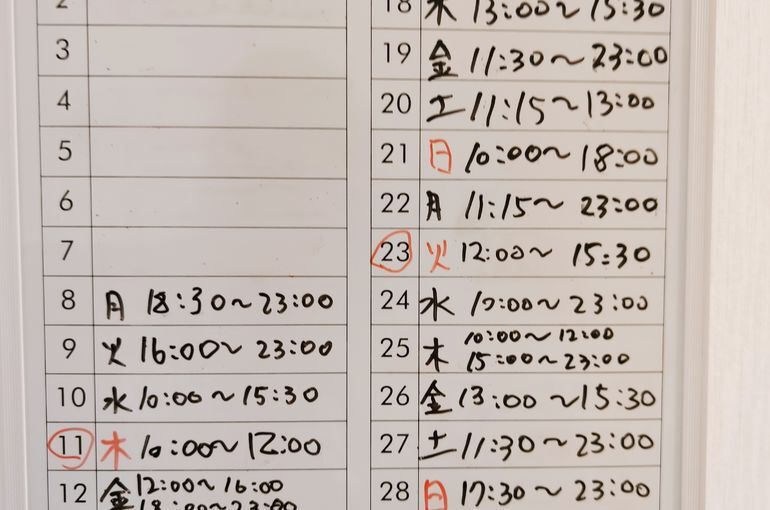 2
3
4
5
6
7
8 月 18:30〜23:00
9 火 16:00〜23:00
10 水 10:00〜15:30
11 木 10:00〜12:00
12 金 12:00〜16:00
18:00〜23:00
18 木 13:00〜15:30
19 金 11:30〜23:00
20 土 11:15〜13:00
21 日 10:00〜18:00
22 月 11:15〜23:00
23 火 12:00〜15:30
24 水 10:00〜23:00
25 木 10:00〜12:00
15:00〜23:00
26 金 13:00〜15:30
27 土 11:30〜23:00
28 日 17:30〜23:00